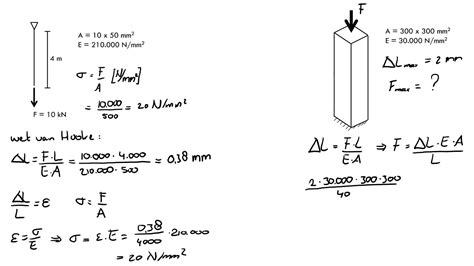 A = 10 x 50 mm²
E = 210.000 N/mm²
4 m
σ = F/A [N/mm²]
= 10.000/500 = 20 N/mm²
F = 10 kN
wet van Hooke:
ΔL = F·L/E·A = 10.000 · 4.000/210.000 · 500 = 0,38 mm
ΔL/L = ε σ = F/A
ε = σ/E ⇒ σ = ε·E = 0,38/4000 · 210.000
= 20 N/mm²
F
A = 300 x 300 mm²
E = 30.000 N/mm²
ΔL max = 2 mm
F max = ?
ΔL = F·L/E·A ⇒ F = ΔL·E·A/L
2 · 30.000 · 300·300/40